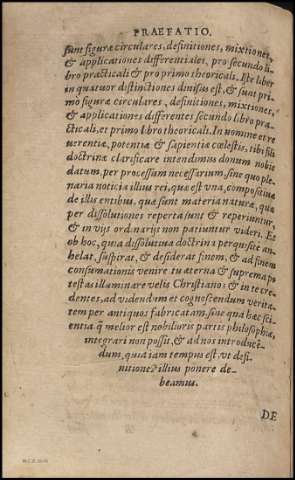 PRAEFATIO.
sunt figuræ circulares, definitiones, mixtiones,
& applicationes differentiales, pro secundo li-
bro practicali & pro primo theoricali. Iste liber
in quatuor distinctiones diuisus est, & sunt pri-
mò figuræ circulares, definitiones, mixtiones,
& applicationes differentes secundo libro pra-
cticali, et primo libro theoricali. In nomine et re
uerentiæ, potentiæ & sapientiæ cœlestis, tibi fili
doctrinæ clarificare intendimus donum nobis
datum, per processum necessarium, sine quo ple-
naria noticia illius rei, quæ est vna, compositiuè
de illis entibus, quæ sunt materia naturæ, quæ
per dissolutiones reperta sunt & reperiuntur,
& in vijs ordinarijs non patiuntur videri. Et
ob hoc, quia dissolutiua doctrina perquã sic an-
helat, suspirat, & desiderat finem, & ad finem
consumationis venire tu æterna & suprema po
testas illuminare velis Christianos & in te cre-
dentes, ad videndum et cognoscendum verita-
tem per antiquos fabricatam, sine qua hæc sci-
entia q̃ melior est nobilioris partis philosophiæ,
integrari non possit, & ad nos introducẽ-
dum, quia iam tempus est, vt defi-
nitiones illius ponere de-
beamus.
DE